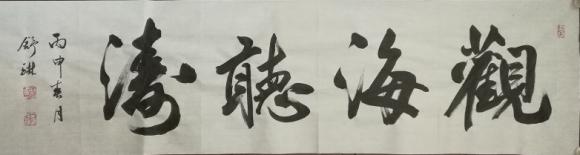 觀海聽濤
丙申春月
舒琳